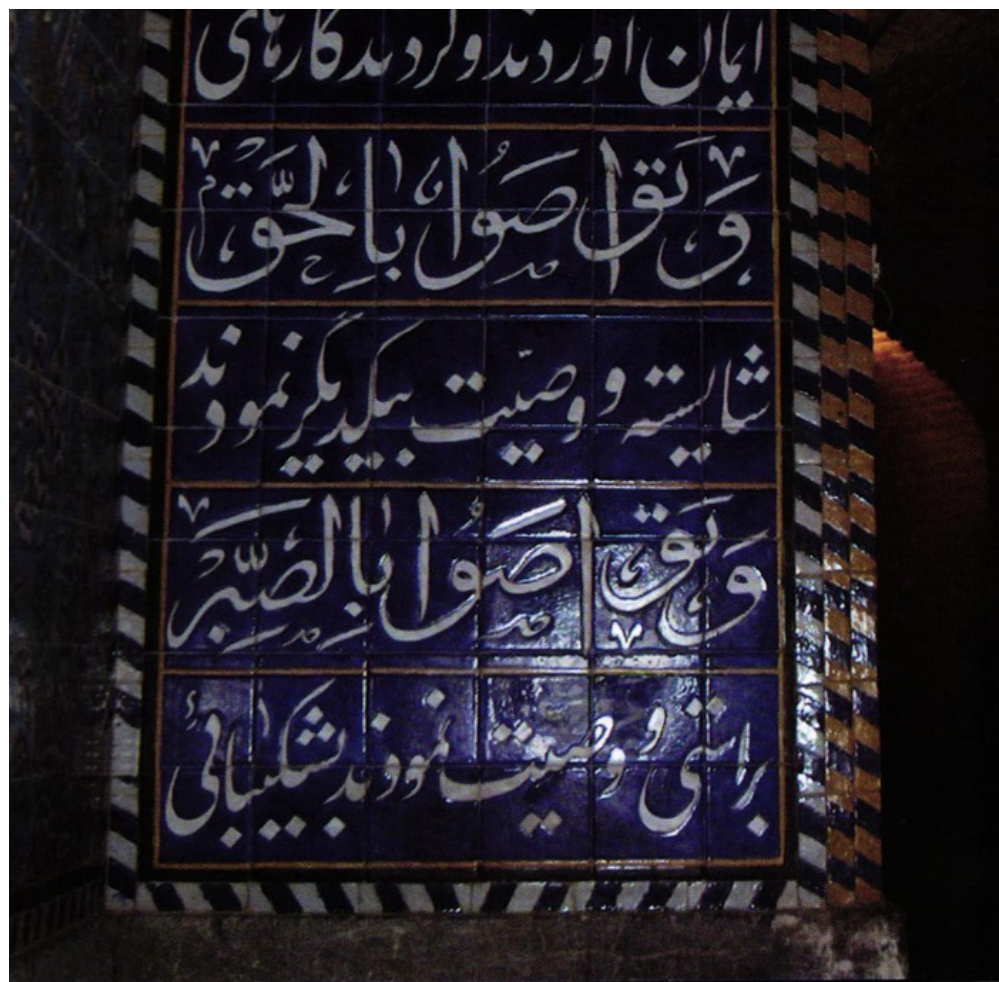 ایمان آوردند و کردند کارهای
وَتَوَاصَوْا بِالْحَقِّ
شایسته و وصیّت بیکدیگر نمودند
وَتَوَاصَوْا بِالصَّبْرِ
براستی و وصیت نمودند بشکیبائی